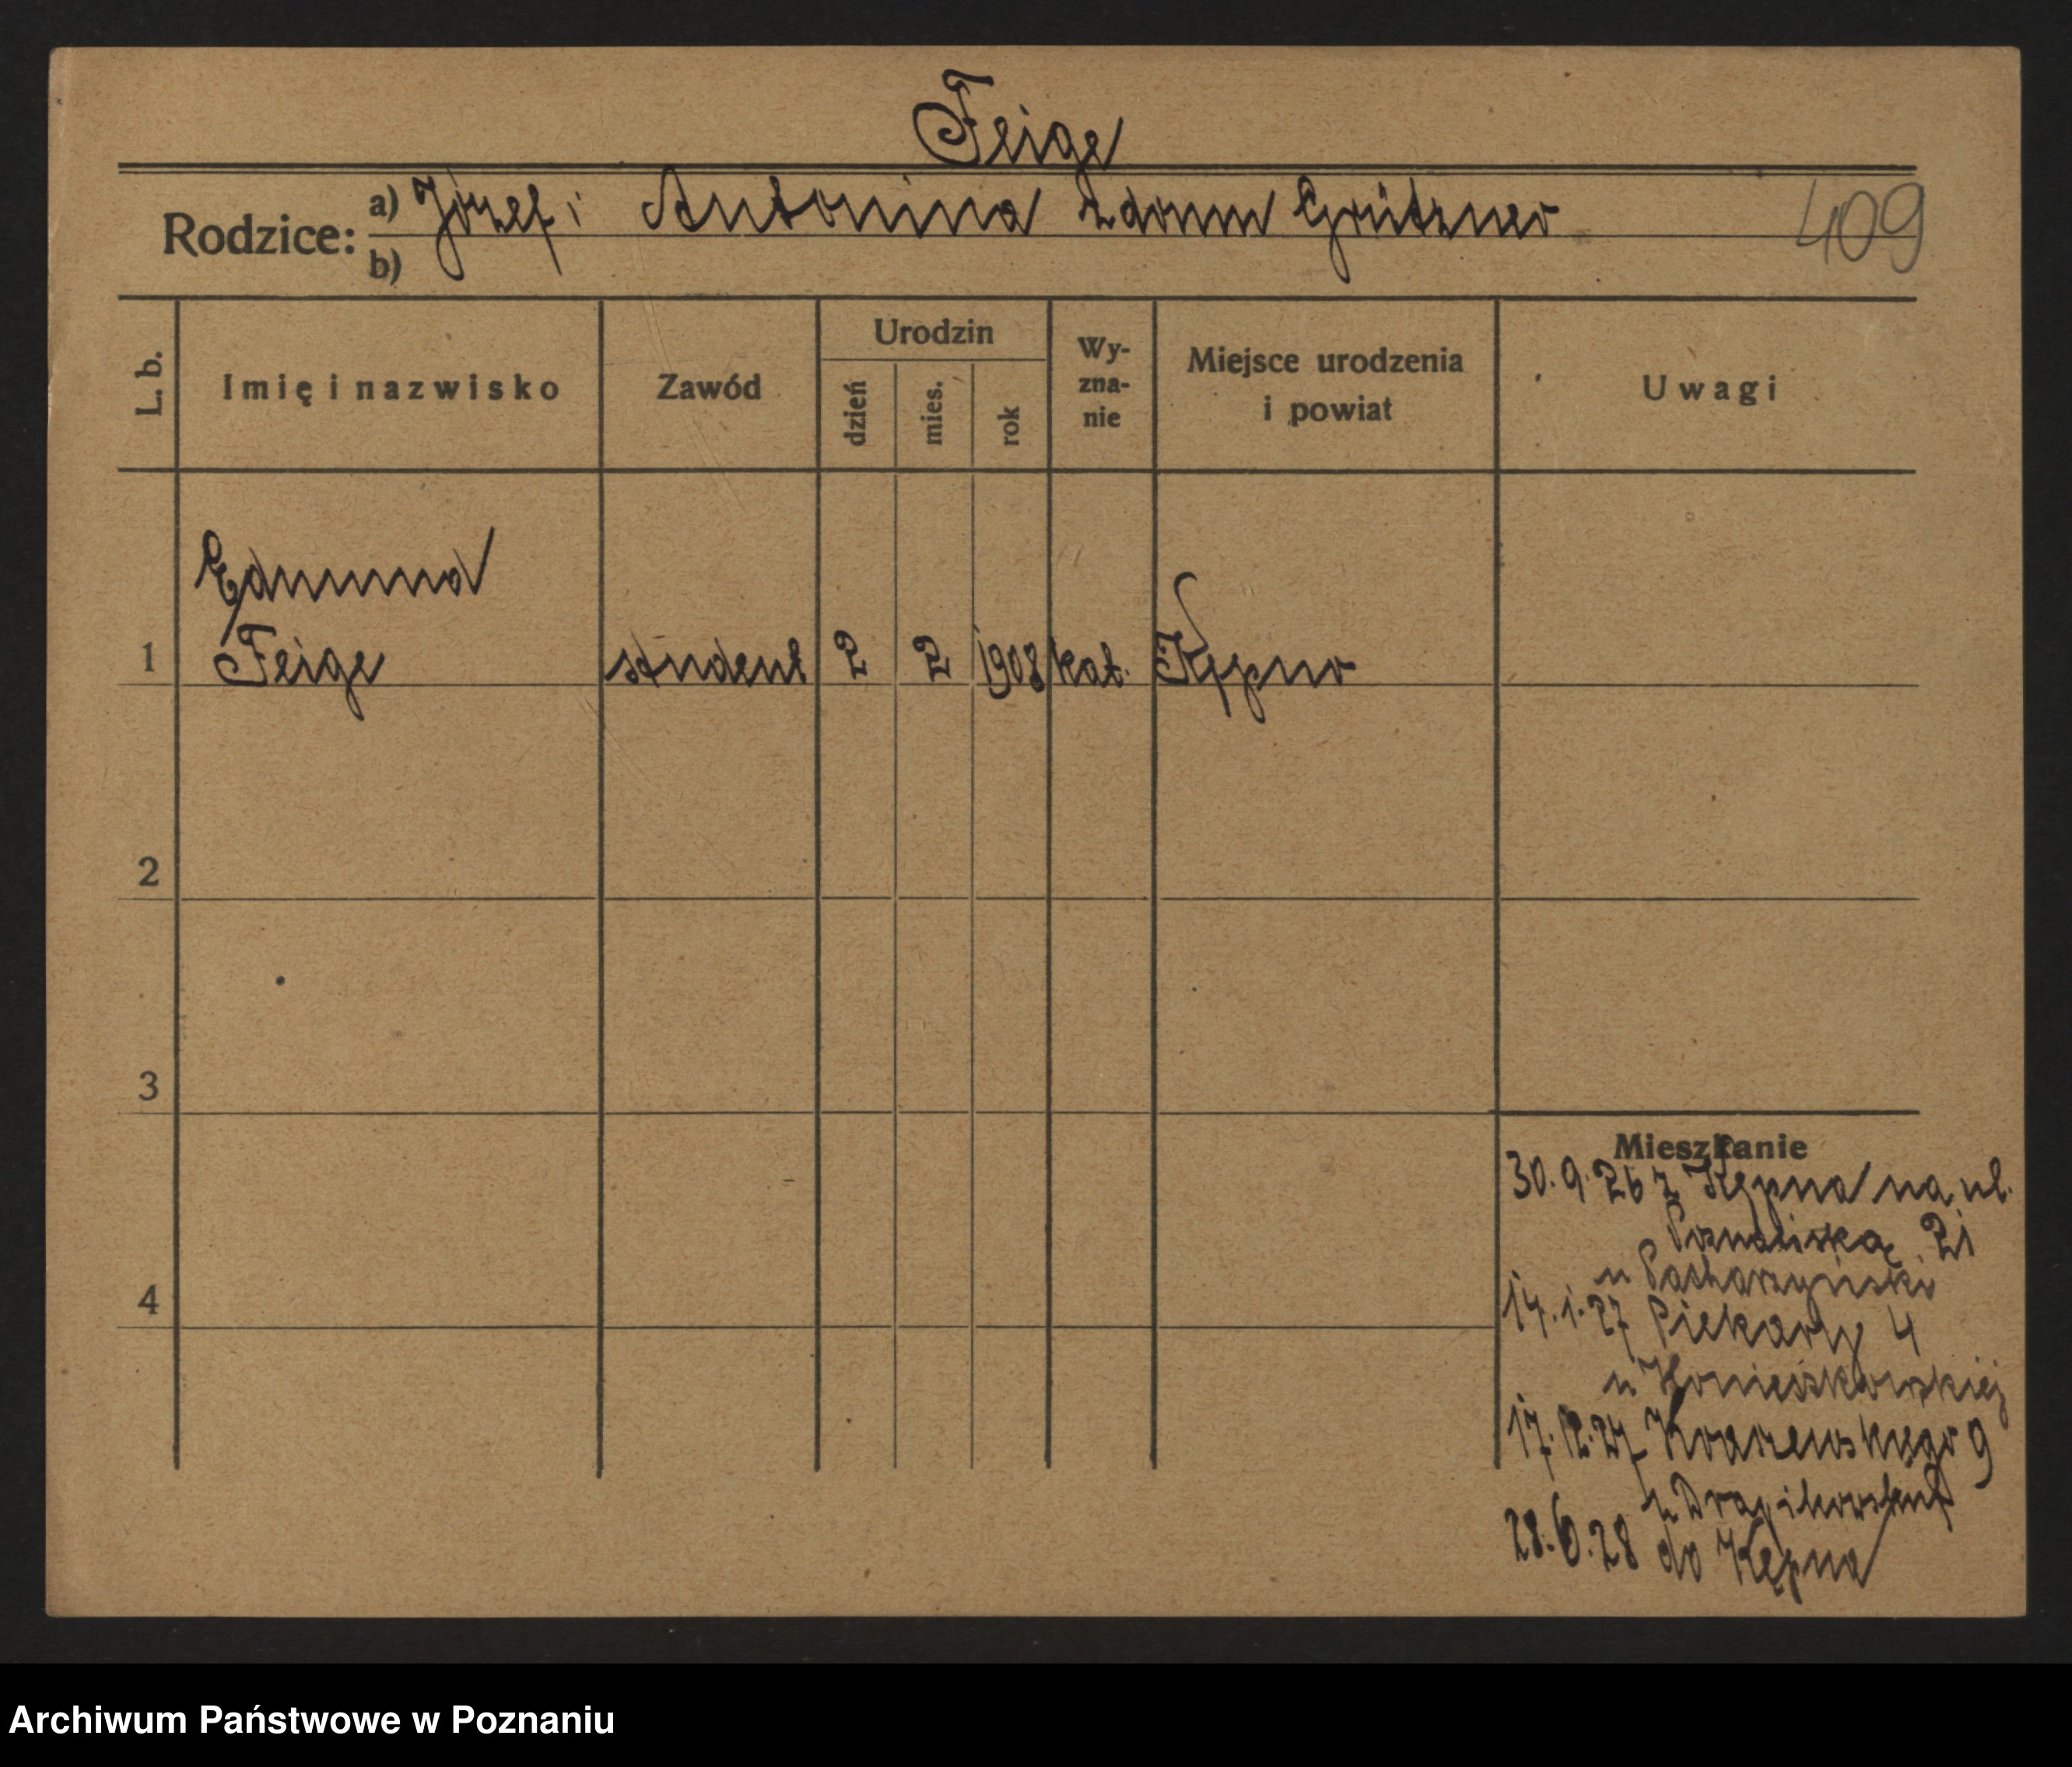 Feige
Rodzice: a) Józef i Antonina z domu Grützner
b)
409
L. b.
Imię i nazwisko
Zawód
Urodzin
dzień
mies.
rok
Wy-
zna-
nie
Miejsce urodzenia
i powiat
Uwagi
Edmund
1 Feige student 2 2 1908 kat. Kępno
2
3
4
Mieszkanie
30.9.26 z Kępna na ul.
Poznańską 21
u
14.1.27 Piekary 4
u
17.12.27 9
u
28.6.28 do Kępna
Archiwum Państwowe w Poznaniu